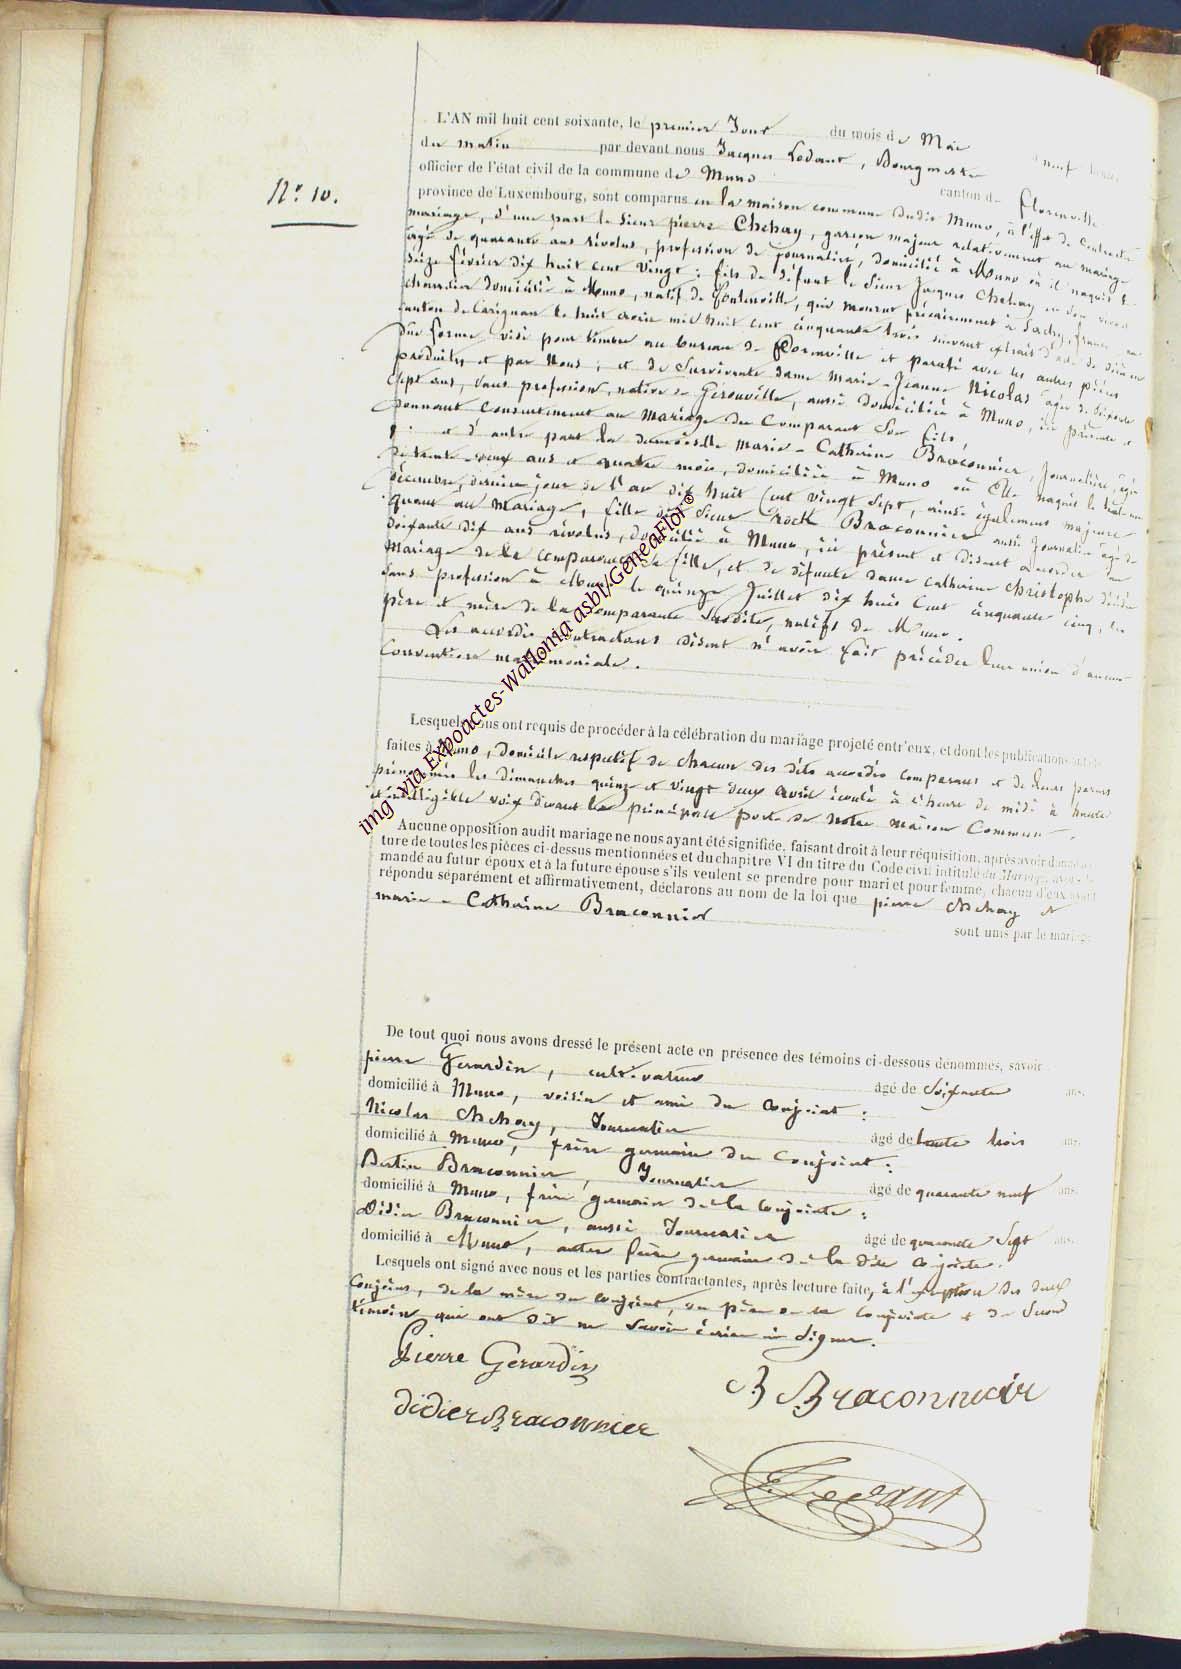 N.° 10.
L'AN mil huit cent soixante, le premier Jour du mois de Mai neuf heures
du matin par devant nous Jacques Lodant, Bourgmestre
officier de l'état civil de la commune de Muno canton de Florenville
province de Luxembourg, sont comparus en la maison commune dudit Muno, à l'effet de contracter
mariage, d'une part le Sieur pierre Chehay, garçon majeur relativement au mariage
âgé de quarante ans révolus, profession de journalier, domicilié à Muno où il naquit le
Seize février dix huit cent vingt ; fils de défunt le Sieur Jacques Chehay en son vivant
domicilié à Muno, natif de Fontenoille, qui mourut précairement à Sachy, france
canton de Carignan le huit mil huit cent cinquante trois suivant extrait d'acte de décès en
dûe forme visé pour timbre au bureau de Florenville et paraphé avec les autres pièces
produites et par Nous ; et de Survivante dame Marie-Jeanne Nicolas âgée de Soixante
Sept ans, sans profession, native de Gérouville, aussi domiciliée à Muno, ici présente et
donnant consentement au mariage du Comparant Son fils,
et d'autre part la demoiselle Marie-Catherine Braconnier, Journalière, âgée
de trente deux ans et quatre mois, domiciliée à Muno où Elle naquit le trente un
décembre, dernier jour de l'an dix huit Cent vingt Sept, ainsi également majeure
quant au Mariage, fille du Sieur Rock Braconnier aussi Journalier âgé de
Soixante dix ans révolus, domicilié à Muno, ici présent et disant accorder au
Mariage de la comparante Sa fille, et de défunte dame Catherine Christophe décédée
sans profession à Muno le quinze Juillet dix huit Cent cinquante cinq, les
père et mère de la comparante Susdite, natifs de Muno.
Les accordés contractans disent n'avoir fait précéder leur union d'aucune
Convention matrimoniale.
Lesquels nous ont requis de procéder à la célébration du mariage projeté entr'eux, et dont les publications ont été
faites à Muno, domicile respectif de chacun des dits accordés comparans et de leurs parens
prénommés les dimanches quinze et vingt deux avril écoulé à l'heure de midi à haute
et intelligible voix devant la principale porte de notre maison Commune.
Aucune opposition audit mariage ne nous ayant été signifiée, faisant droit à leur réquisition, après avoir donné lec-
ture de toutes les pièces ci-dessus mentionnées et du chapitre VI du titre du Code civil intitulé du Mariage, avons de-
mandé au futur époux et à la future épouse s'ils veulent se prendre pour mari et pour femme, chacun d'eux ayant
répondu séparément et affirmativement, déclarons au nom de la loi que pierre Chehay et
marie-Catherine Braconnier sont unis par le mariage
De tout quoi nous avons dressé le présent acte en présence des témoins ci-dessous dénommés, savoir
pierre Gerardin, cultivateur âgé de Soixante ans.
domicilié à Muno, voisin et ami du Conjoint :
Nicolas Chehay, Journalier âgé de trente trois ans
domicilié à Muno, frère germain du Conjoint :
Bertin Braconnier, Journalier âgé de quarante neuf ans.
domicilié à Muno, frère germain de la Conjointe :
Didier Braconnier, aussi Journalier âgé de quarante Sept ans.
domicilié à Muno, autre frère germain de la dite Conjointe.
Lesquels ont signé avec nous et les parties contractantes, après lecture faite, à l'exception des deux
Conjoins, de la mère du conjoint, du père de la Conjointe et du Second
témoin qui ont dit ne Savoir écrire ni Signer.
Pierre Gerardin
B Braconnier
didier Braconnier
J Lodant
img via Expoactes-Wallonia asbl/GeneaFlor©